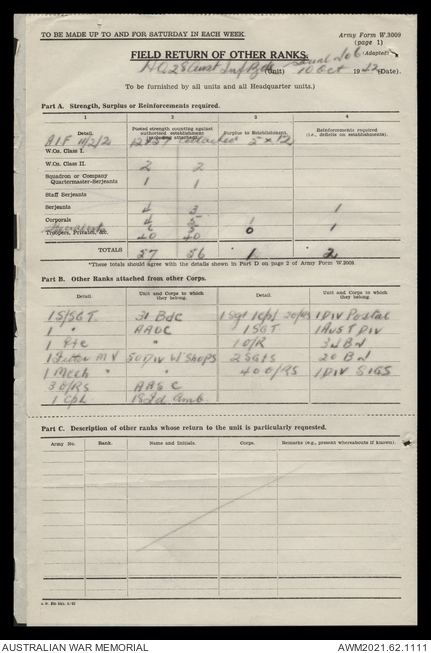 TO BE MADE UP TO AND FOR SATURDAY IN EACH WEEK.
Army Form W.3009
(page 1)
(Adapted)
FIELD RETURN OF OTHER RANKS.
HQ 28 Aust Inf Bde (Unit) 10 Oct 1942 (Date).
To be furnished by all units and all Headquarter units.)
Part A. Strength, Surplus or Reinforcements required.
1 2 3 4
Detail. Posted strength counting against authorized establishment Surplus to Establishment. Reinforcements required (i.e., deficits on establishment).
AIF
W.Os. Class I.
W.Os. Class II. 2 2
Squadron or Company Quartermaster-Serjeants 1 1
Staff Serjeants
Serjeants 4 3 1
Corporals 4 5 1
Troopers, Privates, &c. 40 40 0 1
TOTALS 57 56 1 2
*These totals should agree with the details shown in Part D on page 2 of Army Form W.3009.
Part B. Other Ranks attached from other Corps.
Detail. Unit and Corps to which they belong. Detail. Unit and Corps to which they belong.
1 S/SGT 31 Bde 1 Sgt 1 Cpl 20/RS 1 Div Postal
1 " AAOC 1 SGT 1 Aust Div
1 Pte " 1 O/R 3rd Bn
1 Fitter MV 50 Div W'Shops 2 Sgts 20 Bn
1 Mech " " 40 O/RS 1 Div SIGS
3 O/RS AASC
1 Cpl Fd Amb.
Part C. Description of other ranks whose return to the unit is particularly requested.
Army No. Rank. Name and Initials. Corps. Remarks (e.g., present whereabouts if known).
AUSTRALIAN WAR MEMORIAL AWM2021.62.1111